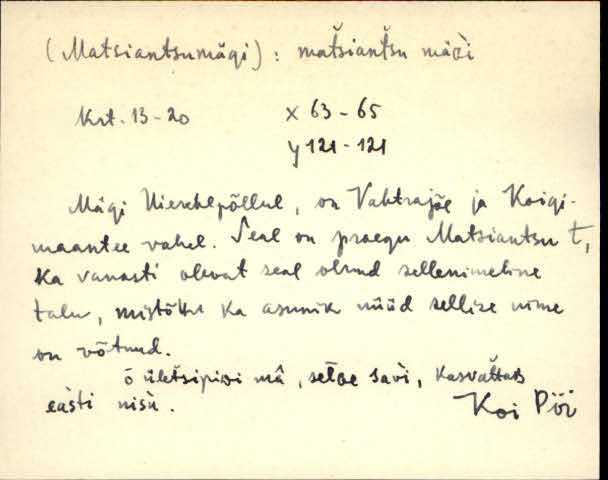 (Matsiantsumägi) : matsiantsu mäɢi
Krt. 13-20 x 63-65
y 121-121
Mägi põllul, on Vahtrajõe ja Koigi-
maantee vahel. Seal on praegu Matsiantsu t,
Ka vanasti olevat seal olnud sellenimeline
talu, mistõttu ka asunik nüüd sellise nime
on võtnud.
savi, kasvattab
easti nisu. Koi